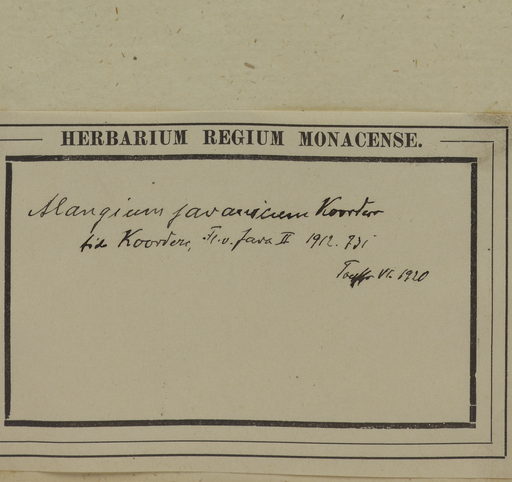 HERBARIUM REGIUM MONACENSE.
Alangium javanicum Koorders
fid Koorders, Fl. v. Java II 1912. 731
VI. 1920